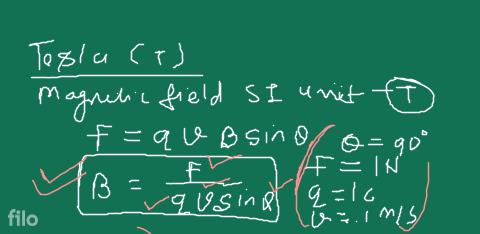 Tesla (T)
Magnetic field SI unit - T
F = q v B sin θ
B = F / q v sin θ
θ = 90°
F = 1N
q = 1C
v = 1 m/s
filo